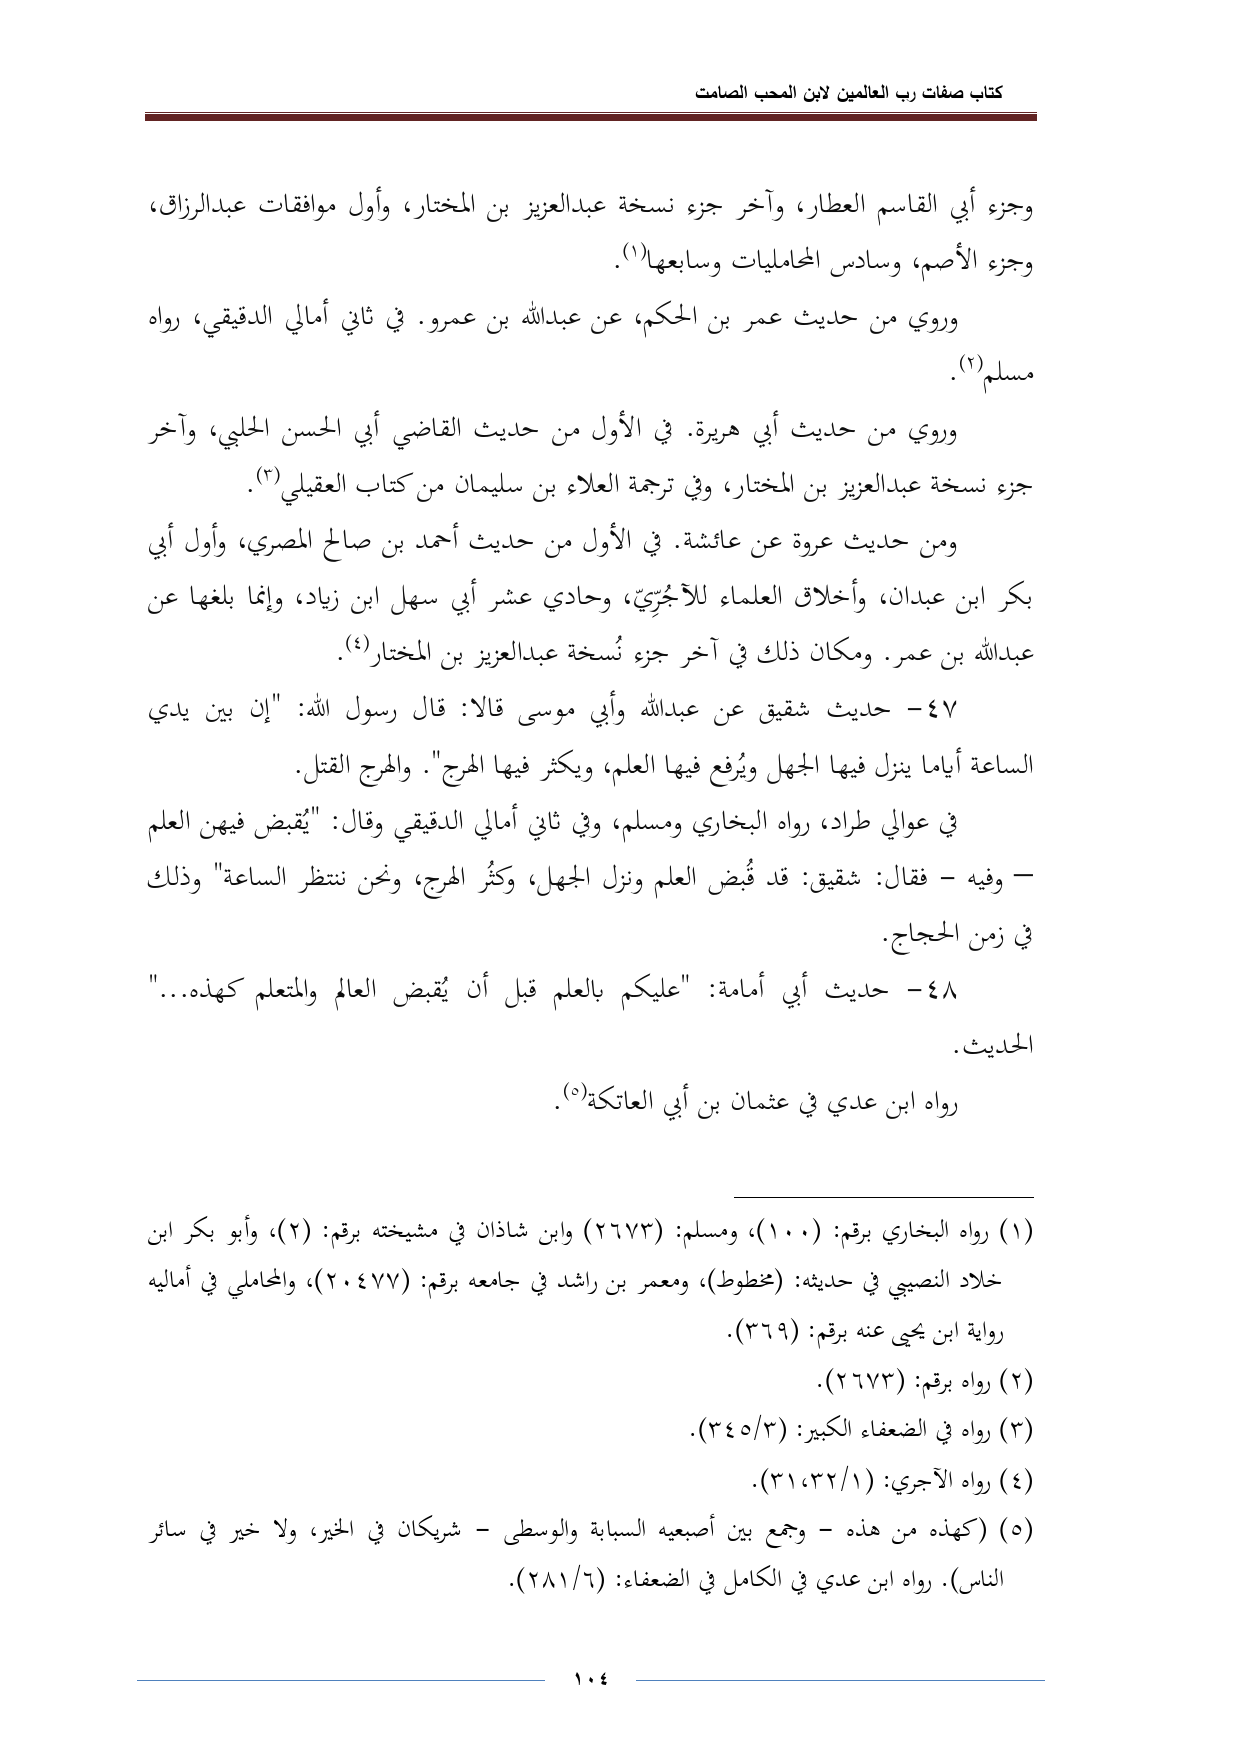 كتاب صفات رب العالمين لابن المحب الصامت
وجزء أبي القاسم العطار، وآخر جزء نسخة عبدالعزيز بن المختار، وأول موافقات عبدالرزاق،
وجزء الأصم، وسادس المحامليات وسابعها(١).
وروي من حديث عمر بن الحكم، عن عبدالله بن عمرو. في ثاني أمالي الدقيقي، رواه
مسلم(٢).
وروي من حديث أبي هريرة. في الأول من حديث القاضي أبي الحسن الحلبي، وآخر
جزء نسخة عبدالعزيز بن المختار، وفي ترجمة العلاء بن سليمان من كتاب العقيلي(٣).
ومن حديث عروة عن عائشة. في الأول من حديث أحمد بن صالح المصري، وأول أبي
بكر ابن عبدان، وأخلاق العلماء للآجُرِّيّ، وحادي عشر أبي سهل ابن زياد، وإنما بلغها عن
عبدالله بن عمر. ومكان ذلك في آخر جزء نُسخة عبدالعزيز بن المختار(٤).
٤٧- حديث شقيق عن عبدالله وأبي موسى قالا: قال رسول الله: "إن بين يدي
الساعة أياما ينزل فيها الجهل ويُرفع فيها العلم، ويكثر فيها الهرج". والهرج القتل.
في عوالي طراد، رواه البخاري ومسلم، وفي ثاني أمالي الدقيقي وقال: "يُقبض فيهن العلم
– وفيه – فقال: شقيق: قد قُبض العلم ونزل الجهل، وكثُر الهرج، ونحن ننتظر الساعة" وذلك
في زمن الحجاج.
٤٨- حديث أبي أمامة: "عليكم بالعلم قبل أن يُقبض العالم والمتعلم كهذه..."
الحديث.
رواه ابن عدي في عثمان بن أبي العاتكة(٥).
(١) رواه البخاري برقم: (١٠٠)، ومسلم: (٢٦٧٣) وابن شاذان في مشيخته برقم: (٢)، وأبو بكر ابن
خلاد النصيبي في حديثه: (مخطوط)، ومعمر بن راشد في جامعه برقم: (٢٠٤٧٧)، والمحاملي في أماليه
رواية ابن يحيى عنه برقم: (٣٦٩).
(٢) رواه برقم: (٢٦٧٣).
(٣) رواه في الضعفاء الكبير: (٣٤٥/٣).
(٤) رواه الآجري: (٣١،٣٢/١).
(٥) (كهذه من هذه – وجمع بين أصبعيه السبابة والوسطى – شريكان في الخير، ولا خير في سائر
الناس). رواه ابن عدي في الكامل في الضعفاء: (٢٨١/٦).
١٠٤